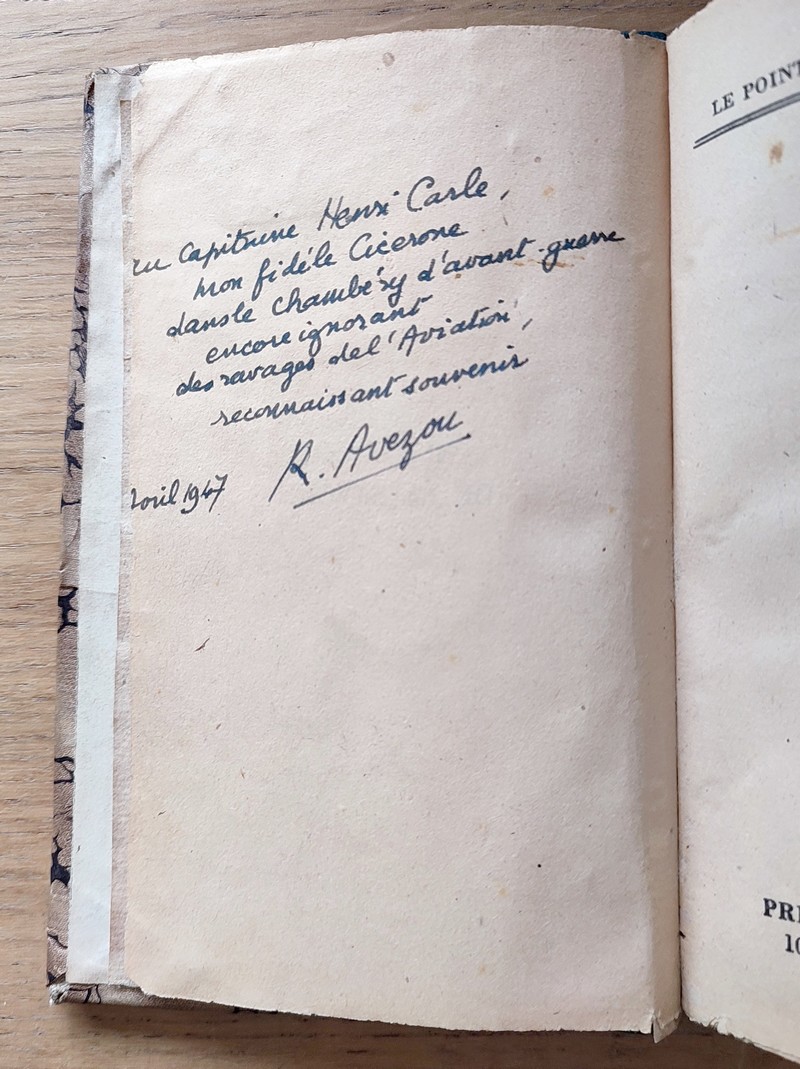 au Capitaine Henri Carle,
mon fidèle Cicerone
dans le Chambéry d'avant-guerre
encore ignorant
des ravages de l'Aviation,
reconnaissant souvenir
R. Avezou
avril 1947
LE POINT
PRE
10